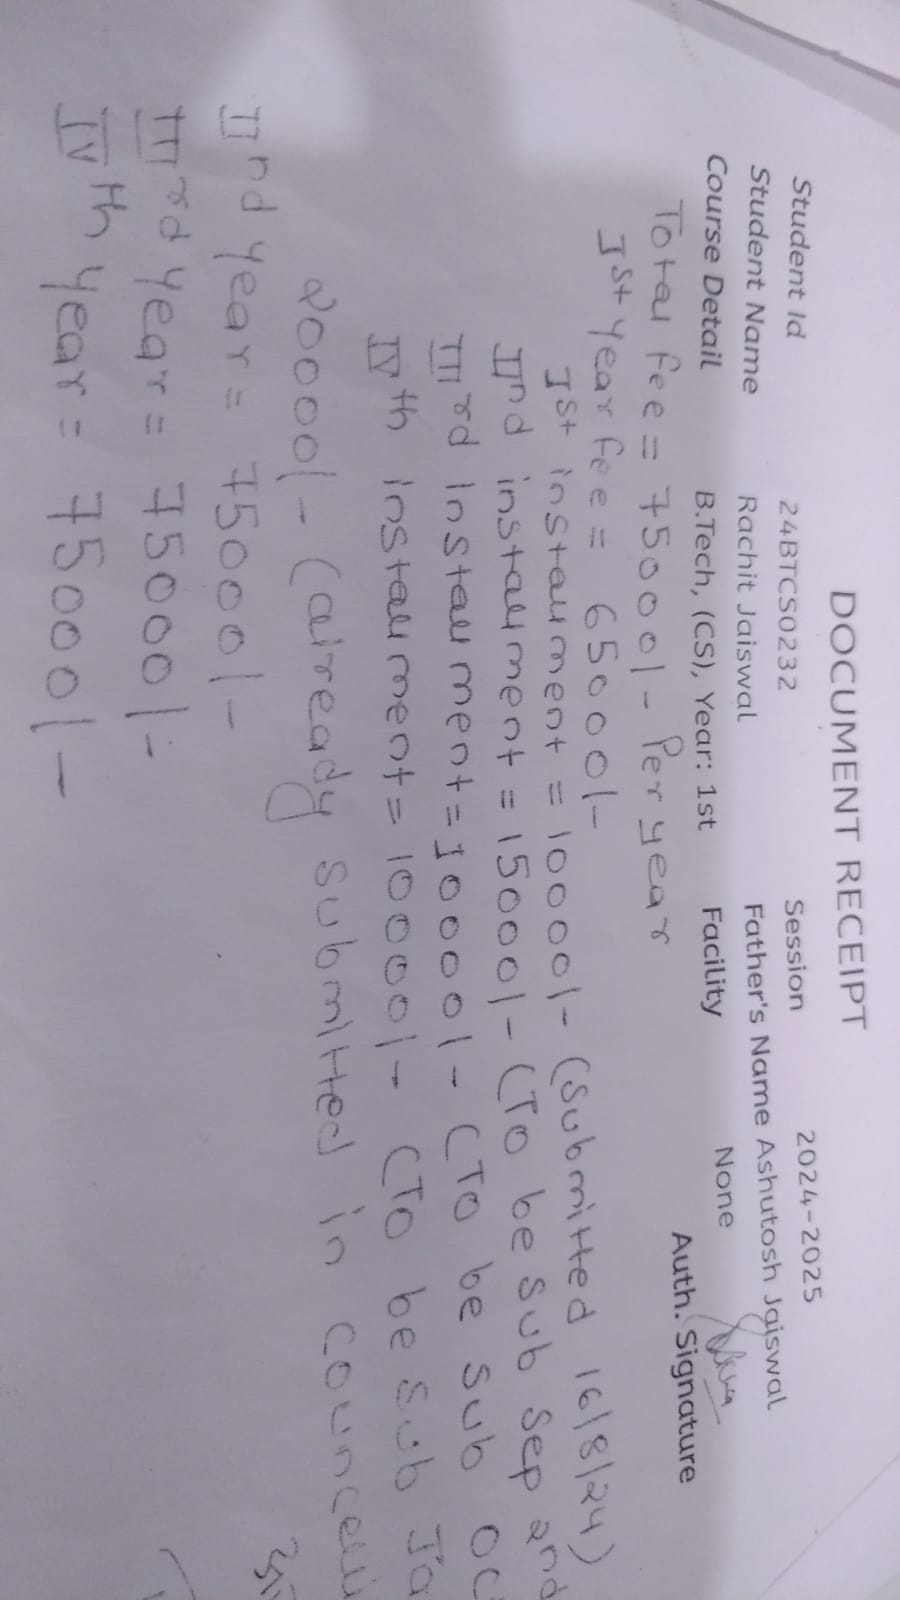 DOCUMENT RECEIPT
Student Id 24BTCS0232 Session 2024-2025
Student Name Rachit Jaiswal Father's Name Ashutosh Jaiswal
Course Detail B.Tech, (CS), Year: 1st Facility None
Auth. Signature
Total fee = 75000/- Per year
Ist year fee = 65000/-
Ist installment = 10000/- (Submitted 16/8/24)
IInd installment = 15000/- (To be Sub Sep 2nd
IIIrd installment = 10000/- (To be Sub Oc
IVth installment = 10000/- (To be Sub Ja
20000/- (already submitted in councelli
IInd year = 75000/-
IIIrd year = 75000/-
IVth year = 75000/-